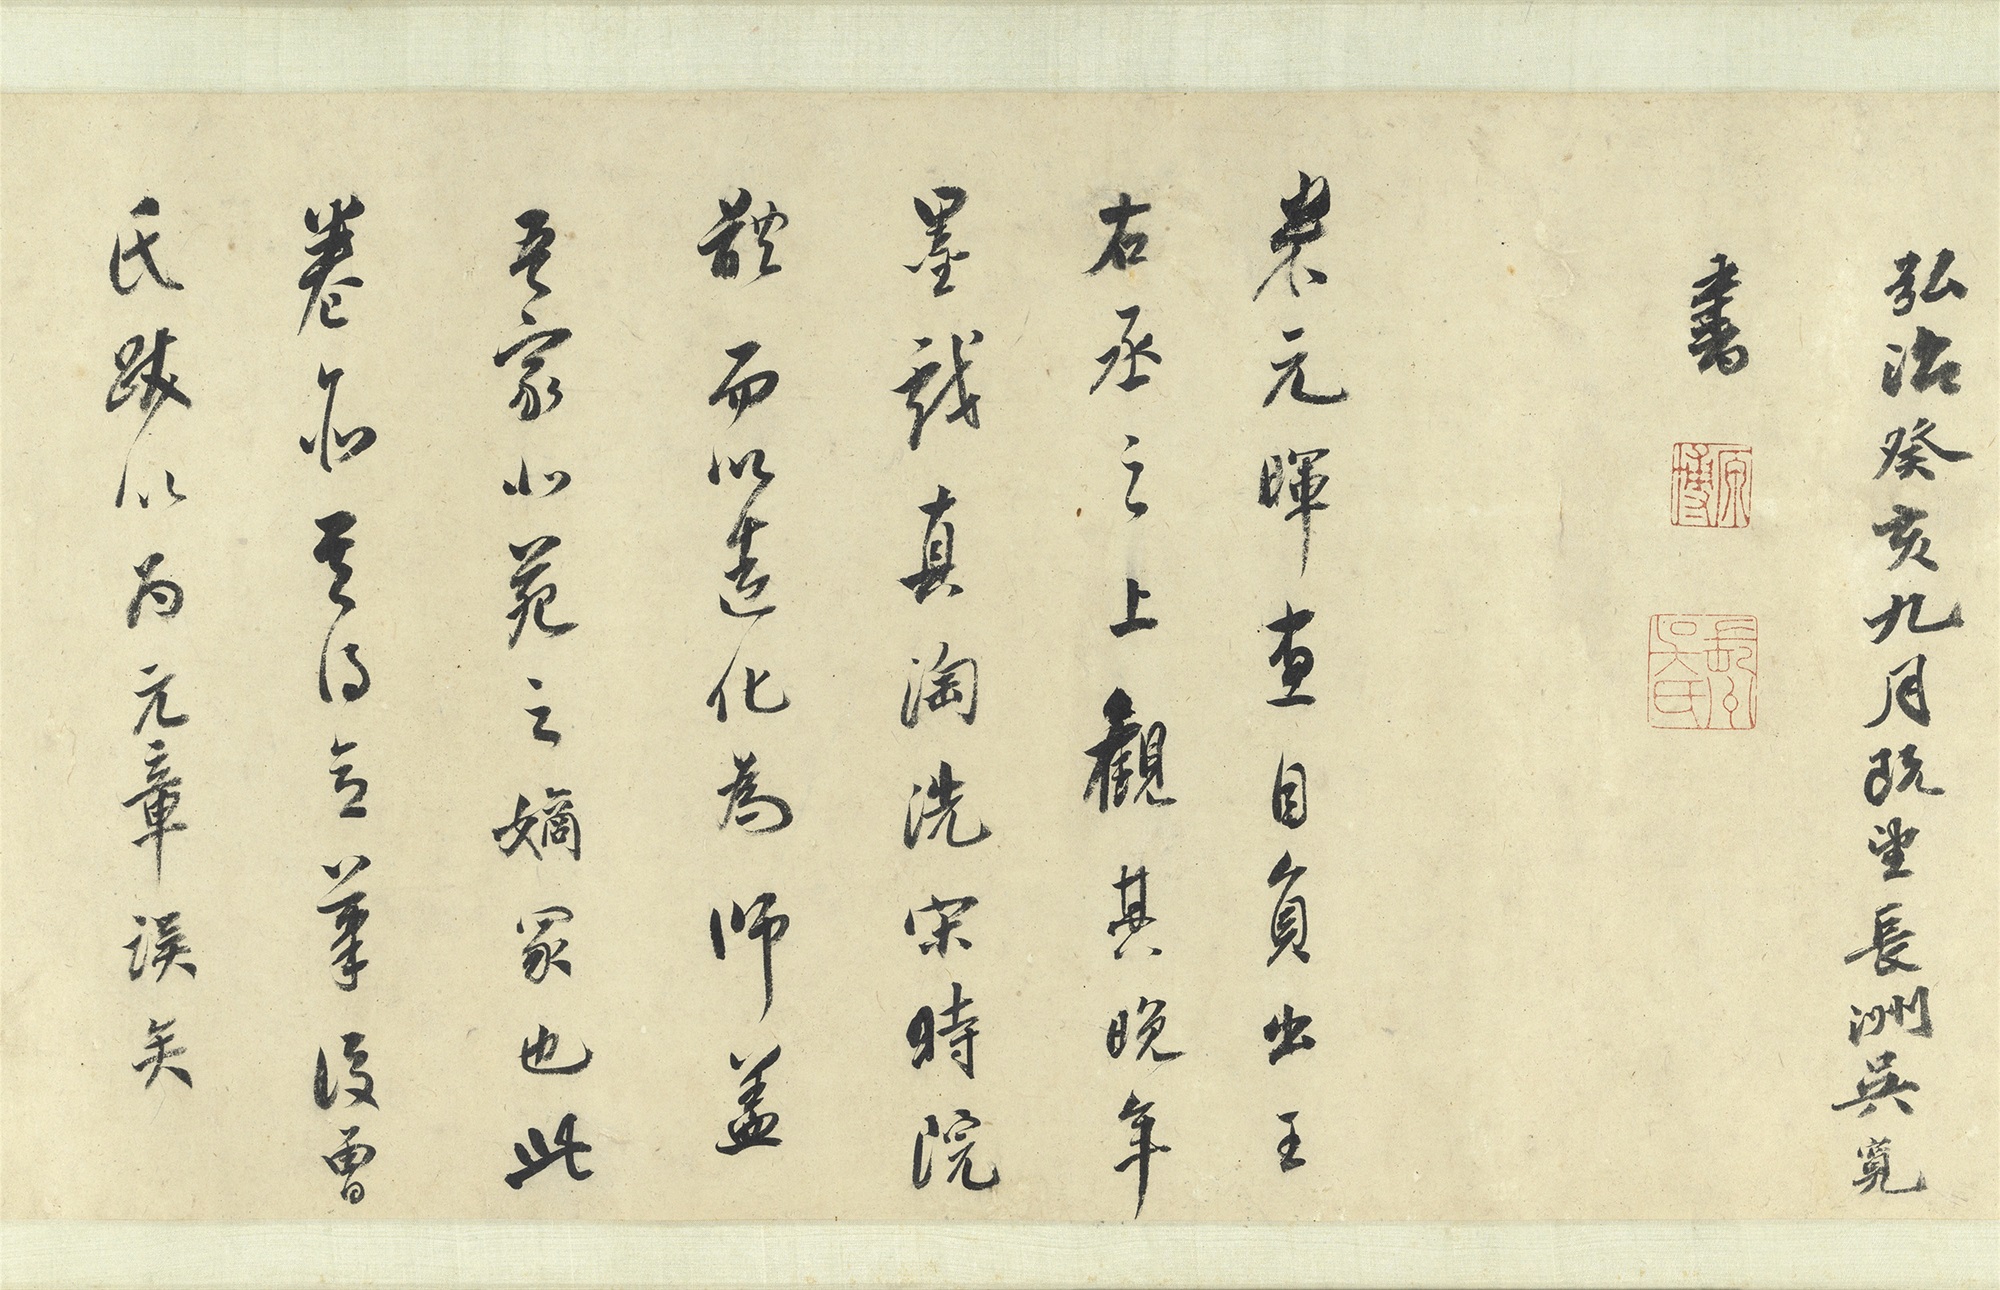 弘治癸亥九月既望長洲吳寬
書
原博
米元暉畫自負出王
右丞之上觀其晚年
墨戲真淘洗宋時院
體而以造化為師蓋
吾家北苑之嫡冢也此
卷亦其得意筆後曾
氏跋以為元章誤矣